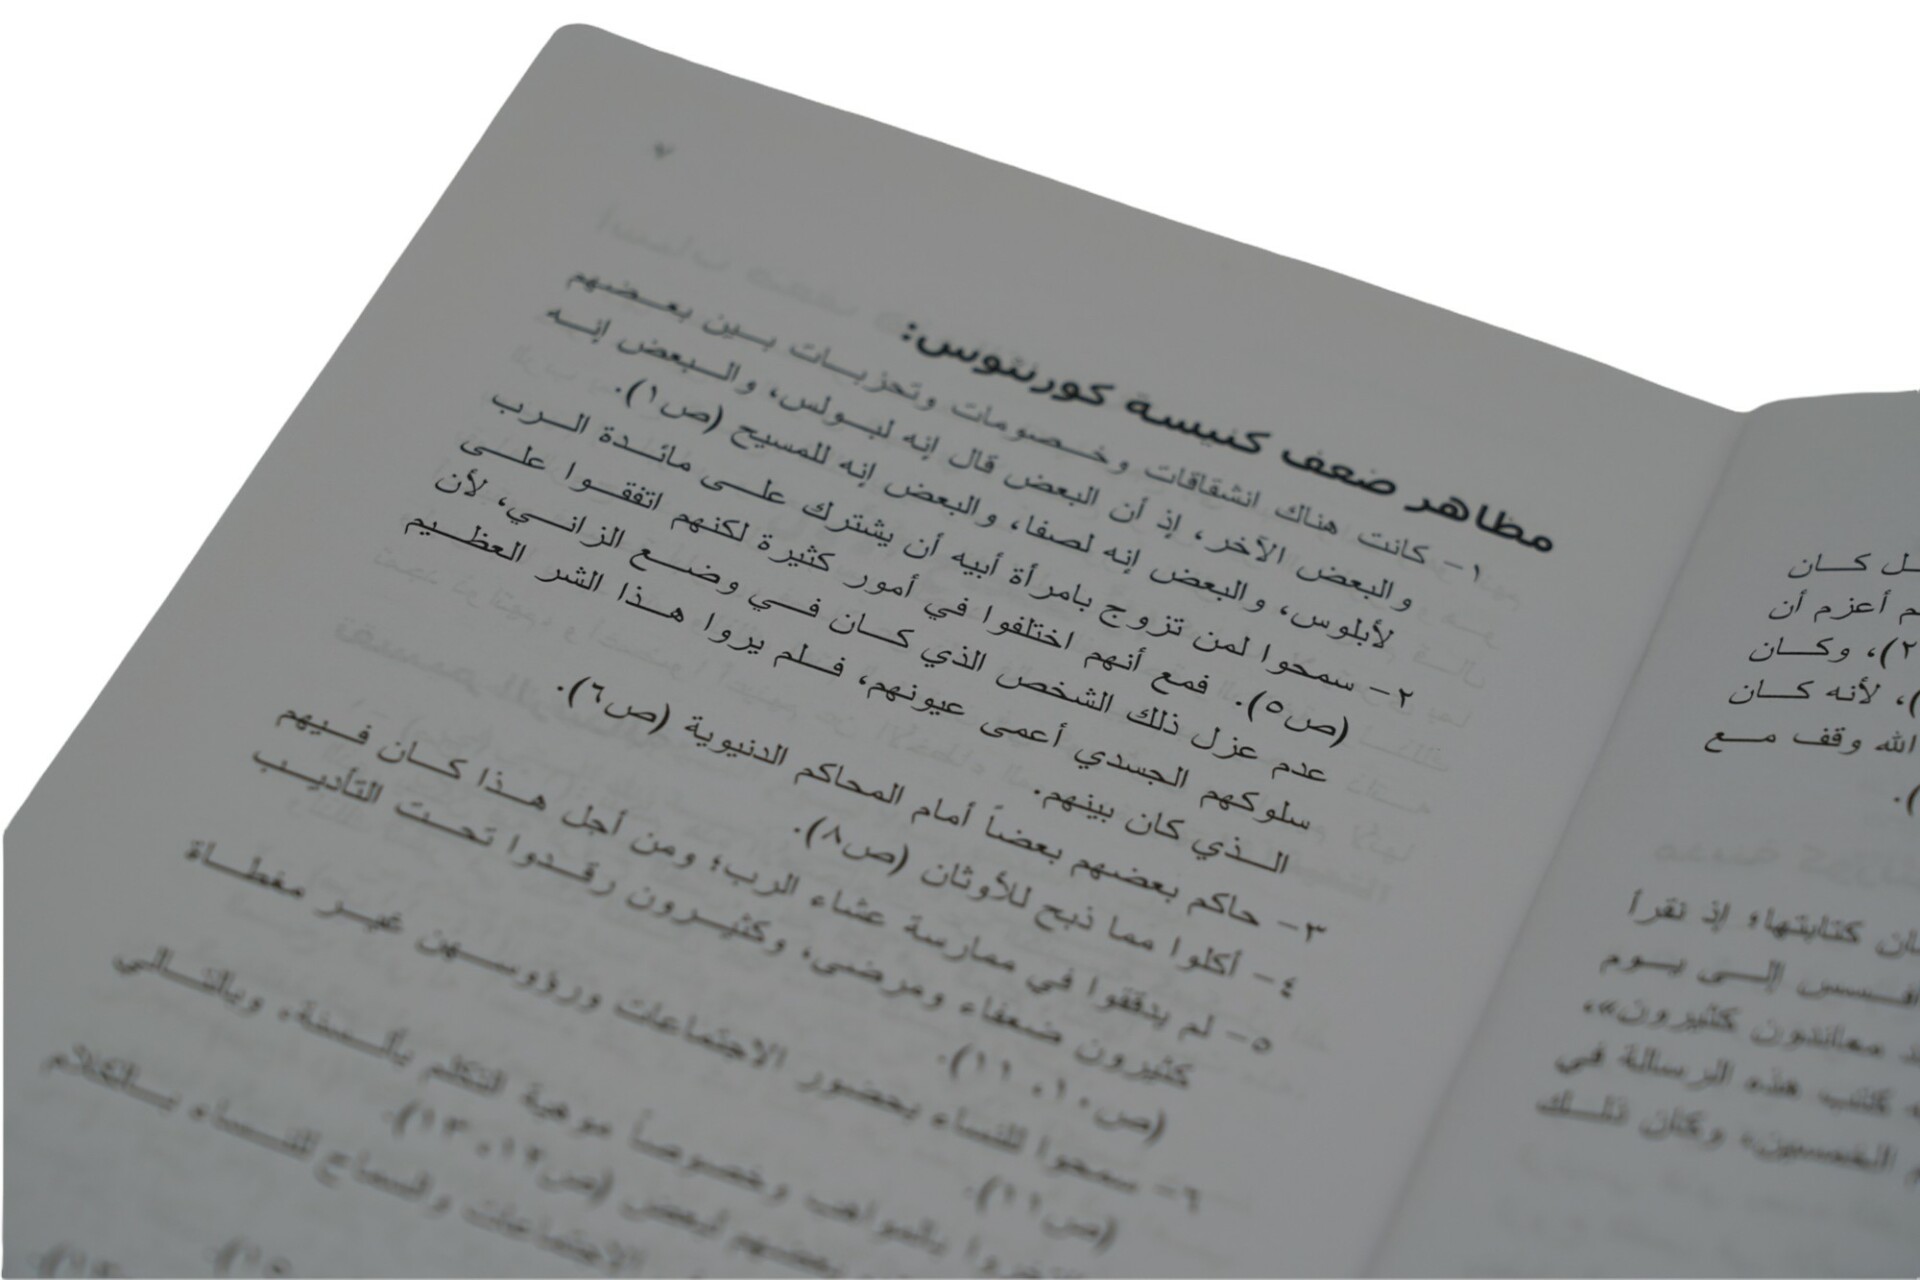 ٧
مظاهر ضعف كنيسة كورنثوس:
١- كانت هناك انشقاقات وخصومات وتحزبات بين بعضهم
والبعض الآخر، إذ أن البعض قال إنه لبولس، والبعض إنه
لأبلوس، والبعض إنه لصفا، والبعض إنه للمسيح (ص١).
٢- سمحوا لمن تزوج بامرأة أبيه أن يشترك على مائدة الرب
(ص٥). فمع أنهم اختلفوا في أمور كثيرة لكنهم اتفقوا على
عدم عزل ذلك الشخص الذي كان في وضع الزاني، لأن
سلوكهم الجسدي أعمى عيونهم، فلم يروا هذا الشر العظيم
الذي كان بينهم.
٣- حاكم بعضهم بعضاً أمام المحاكم الدنيوية (ص٦).
٤- أكلوا مما ذبح للأوثان (ص٨).
٥- لم يدققوا في ممارسة عشاء الرب؛ ومن أجل هذا كان فيهم
كثيرون ضعفاء ومرضى، وكثيرون رقدوا تحت التأديب
(ص١٠، ١١).
٦- سمحوا للنساء بحضور الاجتماعات ورؤوسهن غير مغطاة
(ص١١).
بالمواهب وخصوصاً موهبة التكلم بألسنة، وبالتالي
بعضهم لبعض (ص١٢، ١٣).
الاجتماعات والسماح للنساء بالكلام
كان
أعزم أن
٢)، وكان
)، لأنه كان
الله وقف مع
).
كتابتها؛ إذ نقرأ
أفسس إلى يوم
معاندون كثيرون»،
كتب هذه الرسالة في
الخمسين، وكان ذلك